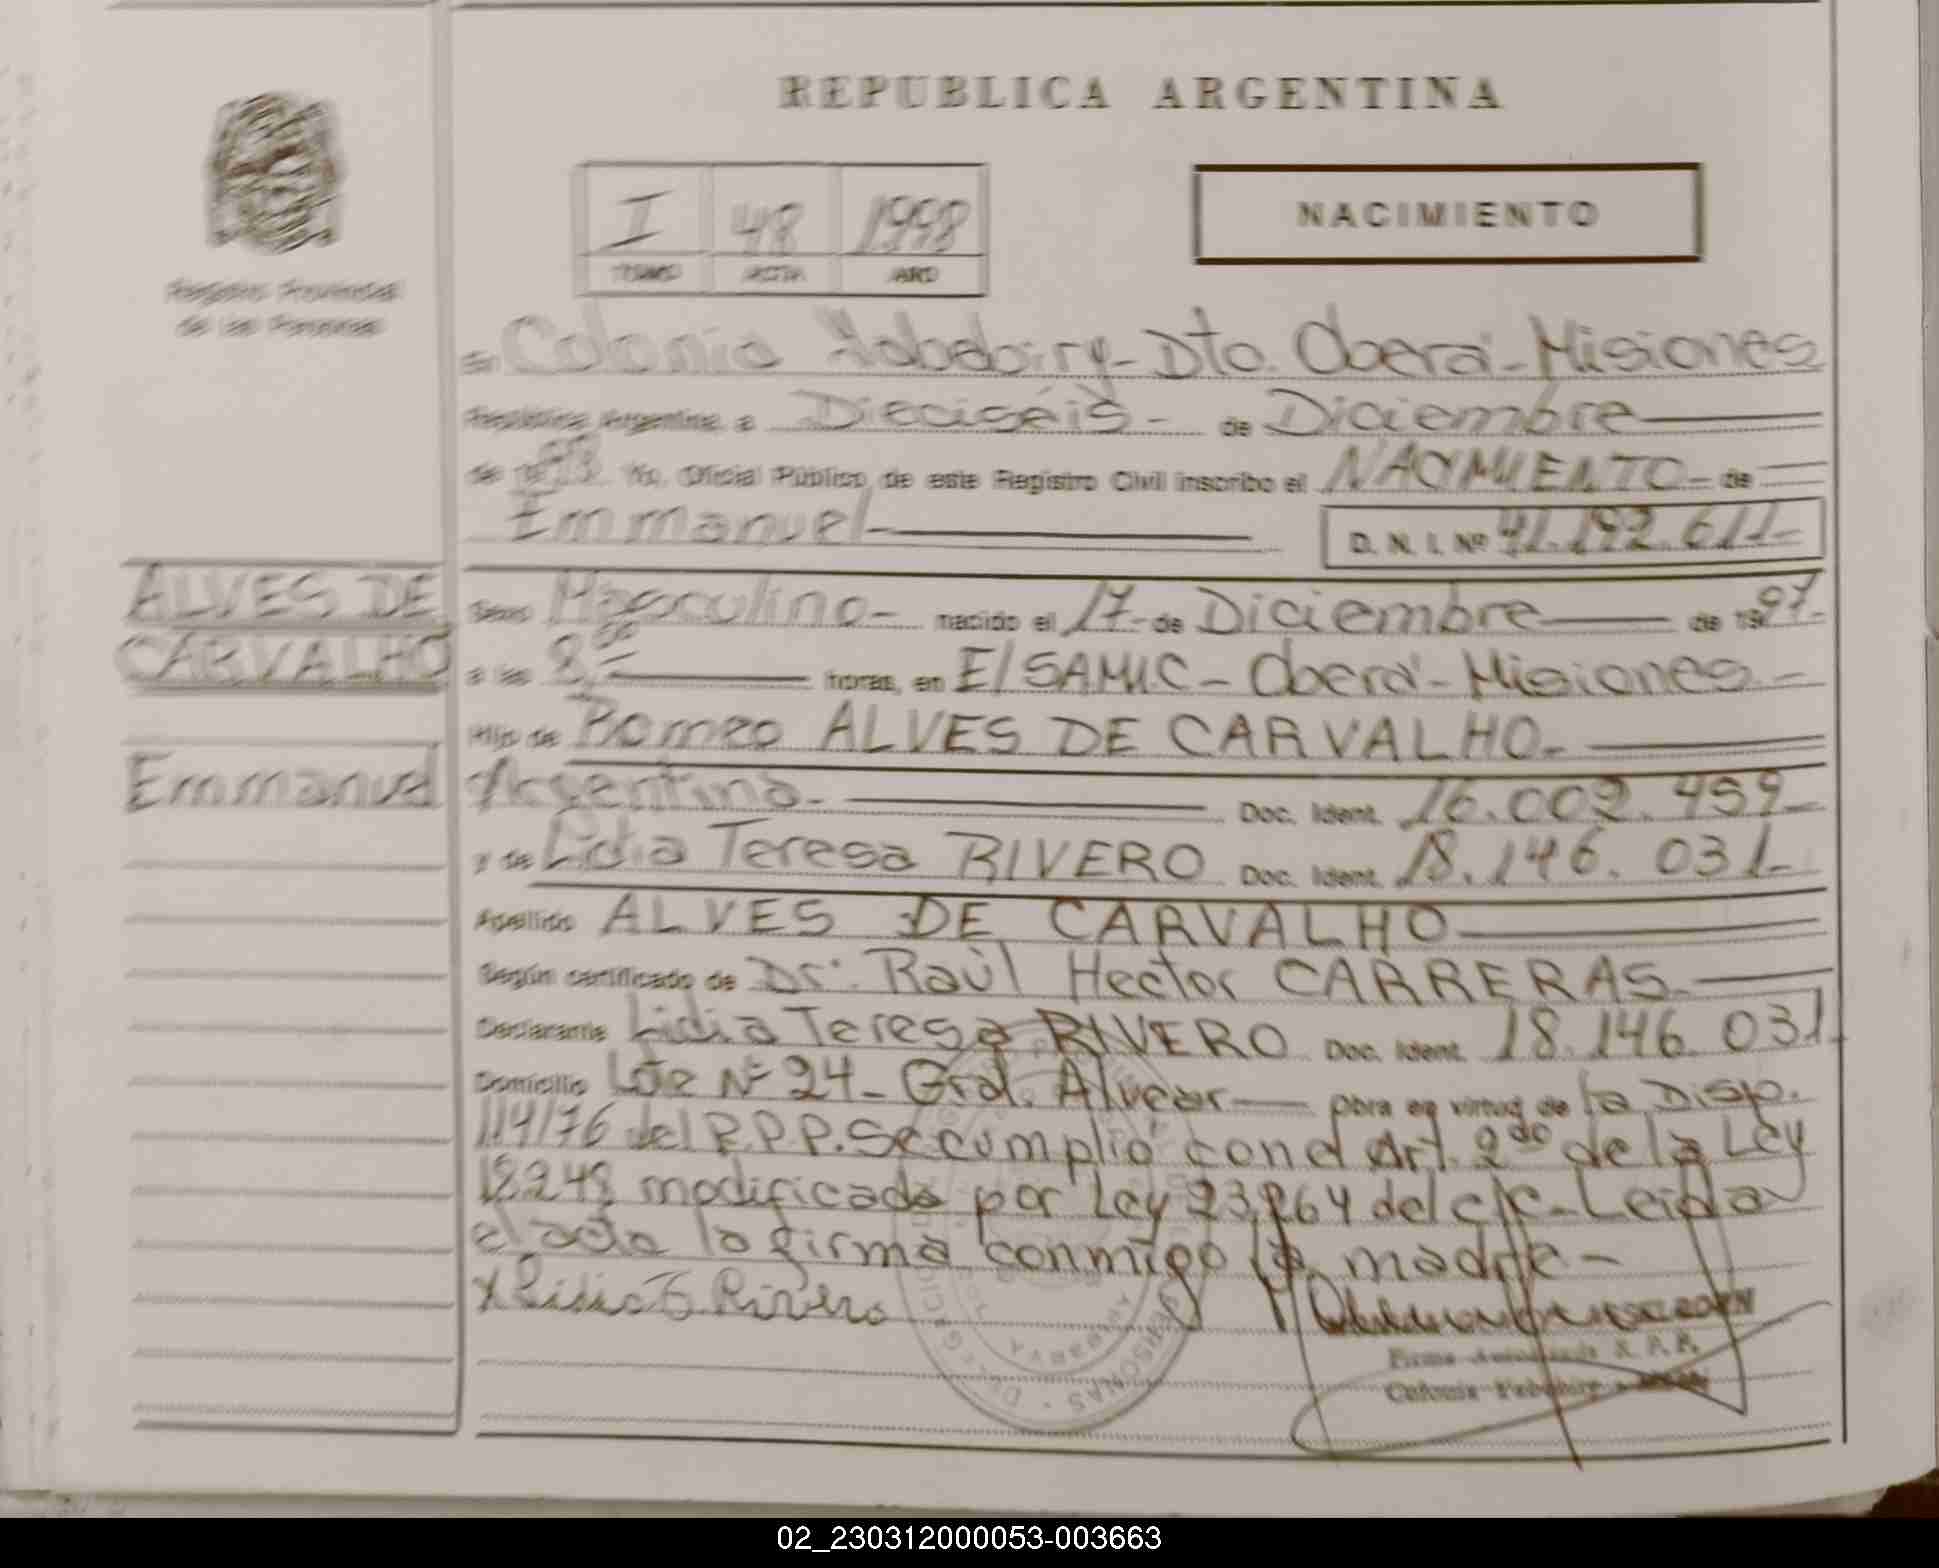 REPUBLICA ARGENTINA
I 48 1998
TOMO ACTA AÑO
NACIMIENTO
Registro Provincial
de las Personas
En Colonia Yabebiry - Dto. Oberá - Misiones
República Argentina a Dieciséis - de Diciembre
de 1998 Yo, Oficial Público de este Registro Civil inscribo el NACIMIENTO - de
Emmanuel - D. N. I. Nº 41.192.611-
ALVES DE
CARVALHO
Emmanuel
Sexo Masculino - nacido el 17 - de Diciembre de 1997-
a las 8,00 horas, en El SAMIC - Oberá - Misiones -
Hijo de Romeo ALVES DE CARVALHO.-
Argentina - Doc. Ident. 16.002.459-
y de Lidia Teresa RIVERO Doc. Ident. 18.146.031-
Apellido ALVES DE CARVALHO
Según certificado de Dr. Raúl Hector CARRERAS.
Declarante Lidia Teresa RIVERO Doc. Ident. 18.146.031
Domicilio Lote Nº 24 - Gral. Alvear Obra en virtud de la Disp.
114/76 del R.P.P. Se cumplió con el Art. 2do de la Ley
18248 modificado por Ley 23.264 del c/c. - Leida
el acta la firma conmigo la madre -
x Lidia T Rivero
Firma Autorizada R. P. P.
Colonia
02_230312000053-003663